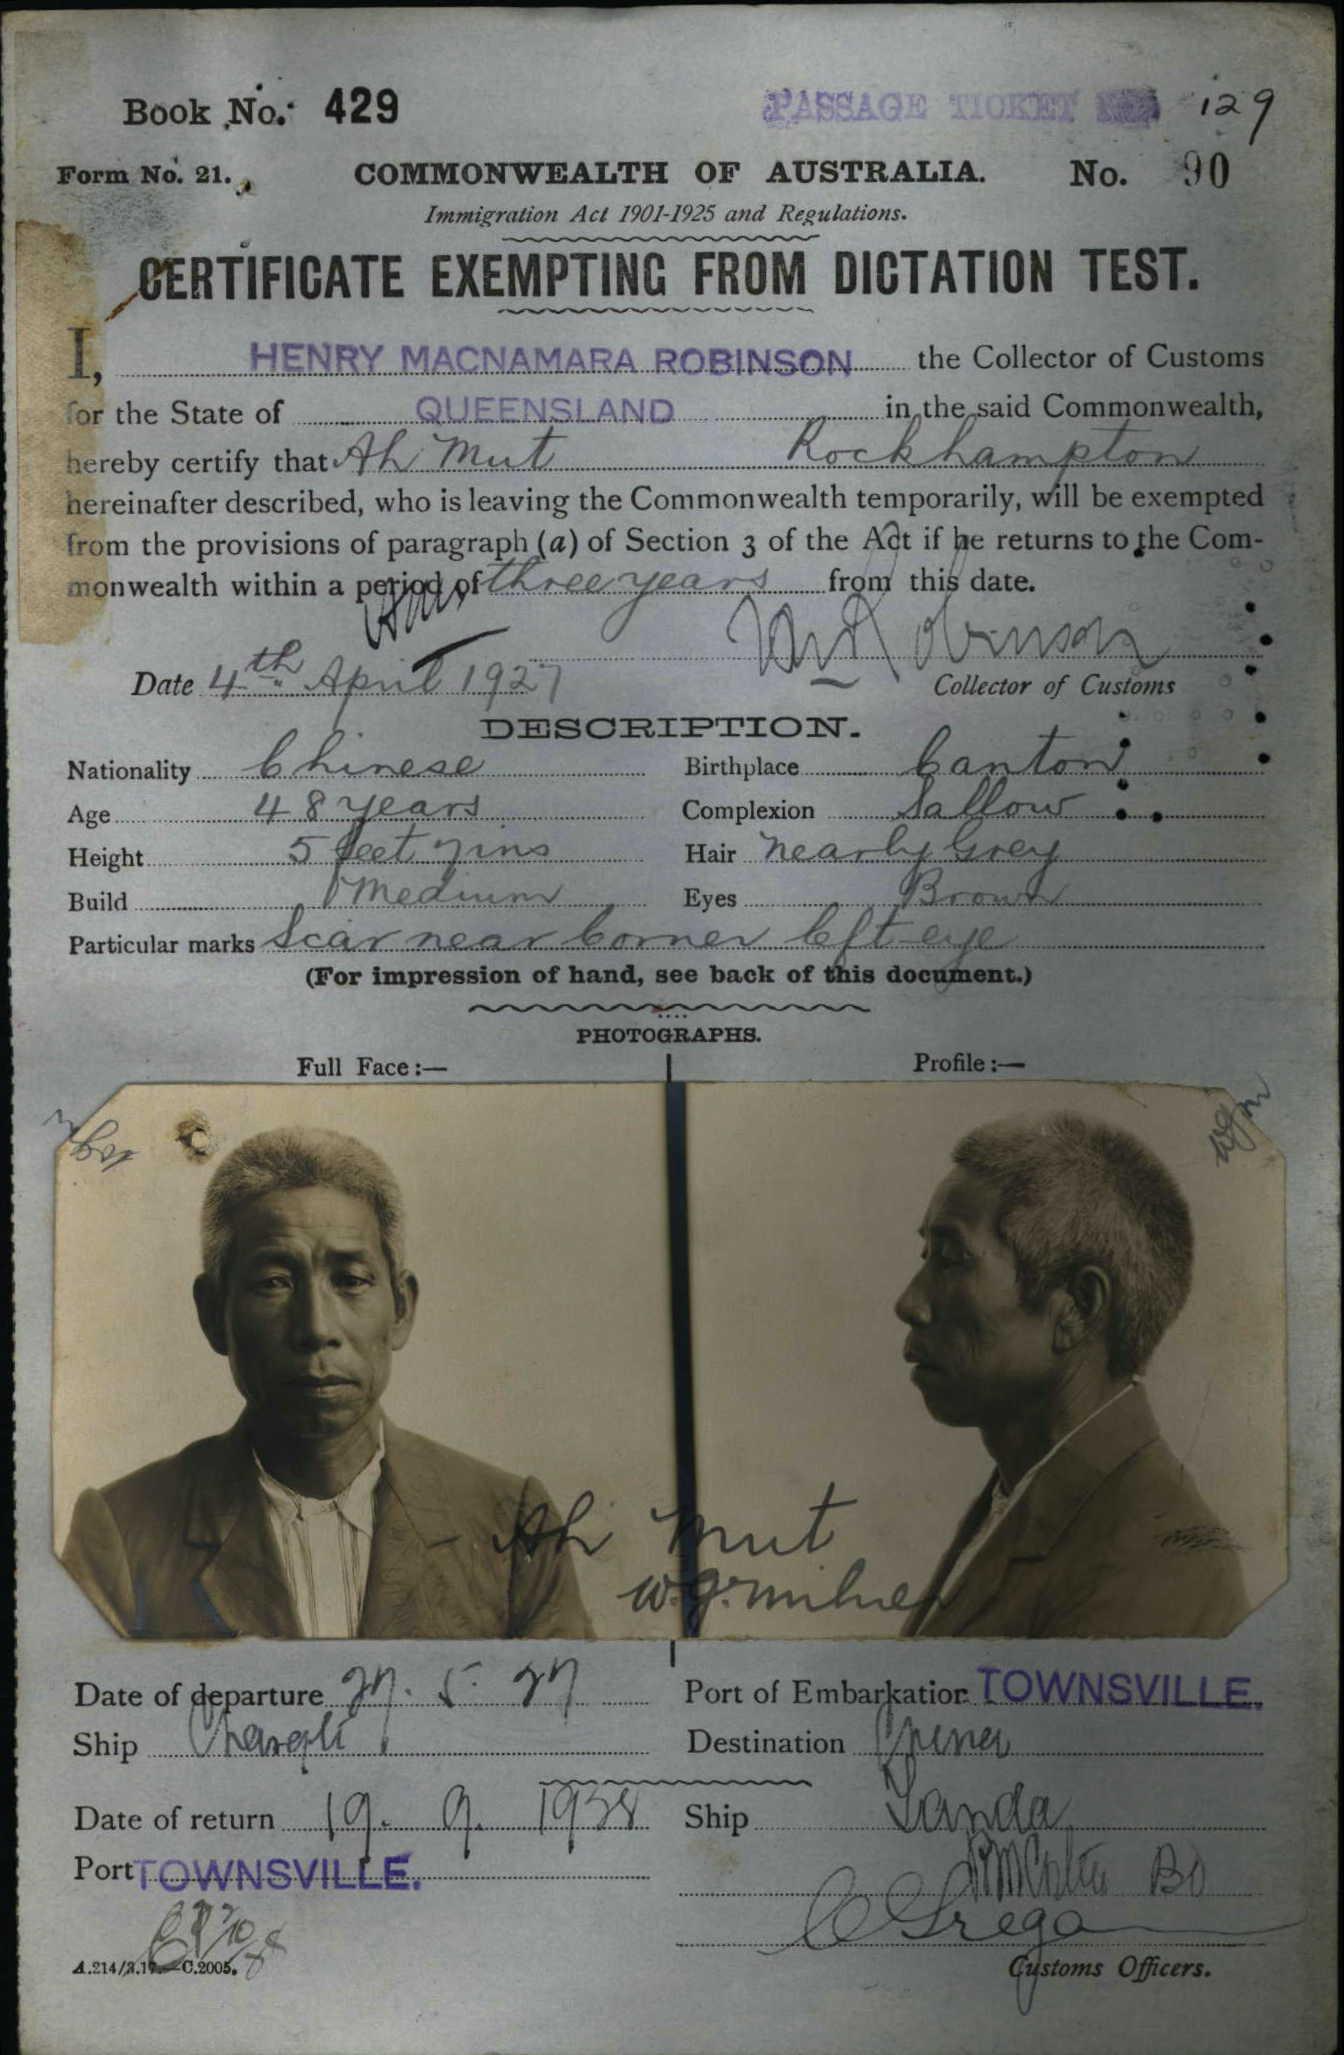 Book No. 429
PASSAGE TICKET No. 129
Form No. 21.
COMMONWEALTH OF AUSTRALIA.
No. 90
Immigration Act 1901-1925 and Regulations.
CERTIFICATE EXEMPTING FROM DICTATION TEST.
I, HENRY MACNAMARA ROBINSON the Collector of Customs
for the State of QUEENSLAND in the said Commonwealth,
hereby certify that Ah Mut Rockhampton
hereinafter described, who is leaving the Commonwealth temporarily, will be exempted
from the provisions of paragraph (a) of Section 3 of the Act if he returns to the Com-
monwealth within a period of three years from this date.
Robinson
Date 4th April 1927
Collector of Customs
DESCRIPTION.
Nationality Chinese Birthplace Canton
Age 48 years Complexion Sallow
Height 5 feet 7 ins Hair Nearly Grey
Build Medium Eyes Brown
Particular marks Scar near corner left eye
(For impression of hand, see back of this document.)
PHOTOGRAPHS.
Full Face :— Profile :—
wgm
Ah Mut
W.G. Milner
Date of departure 27. 5. 27 Port of Embarkation TOWNSVILLE.
Ship Destination China
Date of return 19. 9. 1938 Ship Tanda
Port TOWNSVILLE.
A.214/3.17.—C.2005.
Customs Officers.